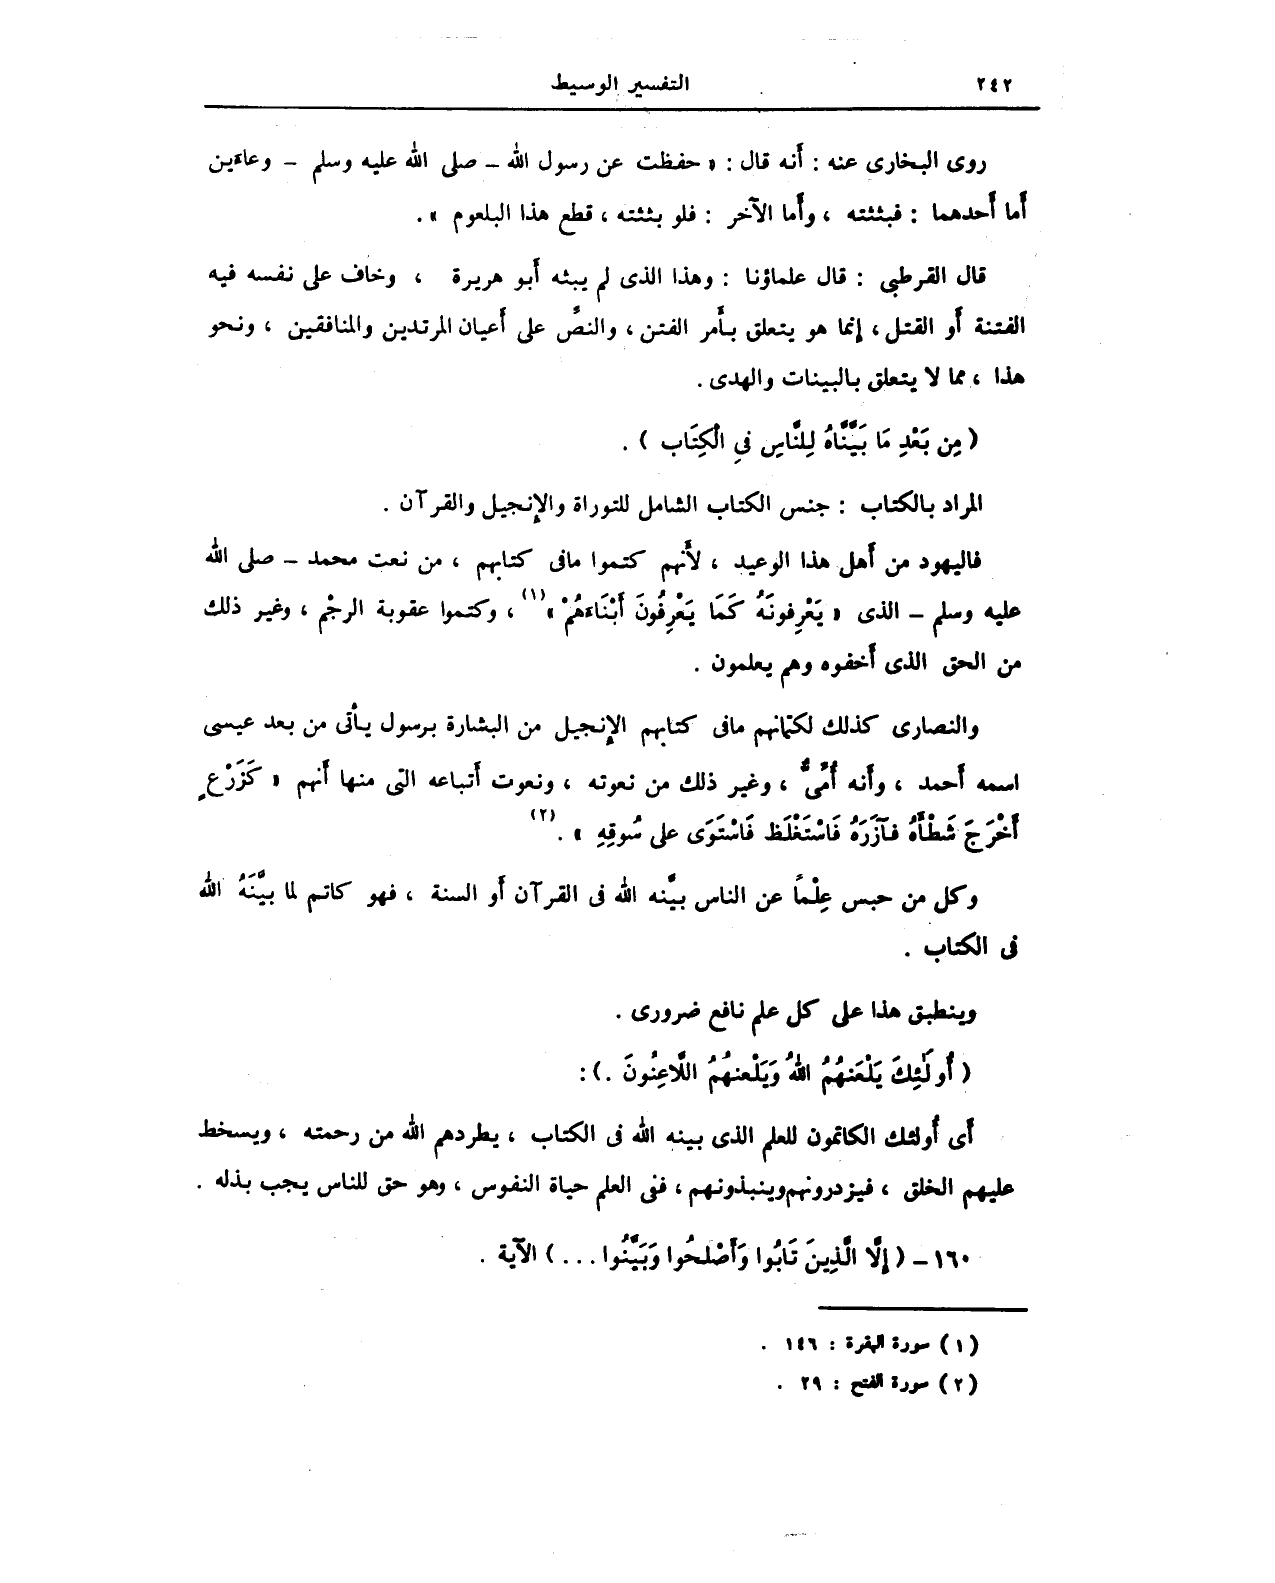 ٢٤٢ التفسير الوسيط
روى البخارى عنه : أنه قال : « حفظت عن رسول الله – صلى الله عليه وسلم – وعاءين
أما أحدهما : فبثثته ، وأما الآخر : فلو بثثته ، قطع هذا البلعوم » .
قال القرطبى : قال علماؤنا : وهذا الذى لم يبثه أبو هريرة ، وخاف على نفسه فيه
الفتنة أو القتل ، إنما هو يتعلق بأمر الفتن ، والنصُّ على أعيان المرتدين والمنافقين ، ونحو
هذا ، مما لا يتعلق بالبينات والهدى .
( مِن بَعْدِ مَا بَيَّنَّاهُ لِلنَّاسِ فِى الْكِتَابِ ) .
المراد بالكتاب : جنس الكتاب الشامل للتوراة والإنجيل والقرآن .
فاليهود من أهل هذا الوعيد ، لأنهم كتموا مافى كتابهم ، من نعت محمد – صلى الله
عليه وسلم – الذى « يَعْرِفونَهُ كَمَا يَعْرِفُونَ أَبْنَاءَهُمْ » (١) ، وكتموا عقوبة الرجْم ، وغير ذلك
من الحق الذى أخفوه وهم يعلمون .
والنصارى كذلك لكتمانهم مافى كتابهم الإنجيل من البشارة برسول يأتى من بعد عيسى
اسمه أحمد ، وأنه أُمِّىٌّ ، وغير ذلك من نعوته ، ونعوت أتباعه التى منها أنهم « كَزَرْعٍ
أَخْرَجَ شَطْأَهُ فَآزَرَهُ فَاسْتَغْلَظَ فَاسْتَوَى على سُوقِهِ » . (٢)
وكل من حبس عِلْماً عن الناس بيَّنه الله فى القرآن أو السنة ، فهو كاتم لما بيَّنَهُ الله
فى الكتاب .
وينطبق هذا على كل علم نافع ضرورى .
( أُولَٰئِكَ يَلْعَنهُمُ اللهُ وَيَلْعنهُمُ اللَّاعِنُونَ . ) :
أى أُولئك الكاتمون للعلم الذى بينه الله فى الكتاب ، يطردهم الله من رحمته ، ويسخط
عليهم الخلق ، فيزدرونهم وينبذونهم ، ففى العلم حياة النفوس ، وهو حق للناس يجب بذله .
١٦٠ – ( إِلَّا الَّذِينَ تَابُوا وَأَصْلَحُوا وَبَيَّنُوا . . . ) الآية .
(١) سورة البقرة : ١٤٦ .
(٢) سورة الفتح : ٢٩ .